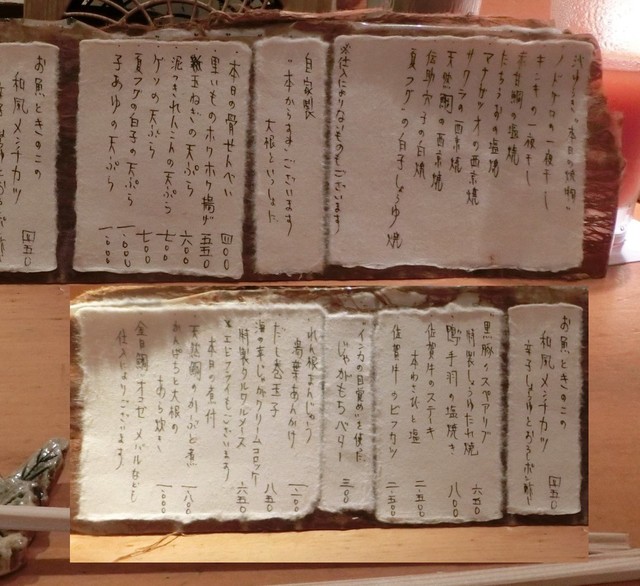 ノドグロの一夜干し
キンキの一夜干し
甘鯛の塩焼
たちうおの塩焼
マナガツオの西京焼
サワラの西京焼
天然鯛の西京焼
伝助穴子の白焼
夏フグの白子しょうゆ焼
※仕入によりないものもございます
自家製
一本からすみございます
大根といっしょに
本日の骨せんべい 四〇〇
里いものホクホク揚げ 五五〇
新玉ねぎの天ぷら 六〇〇
泥つきれんこんの天ぷら 七〇〇
ゲソの天ぷら 七〇〇
夏フグの白子の天ぷら 一、〇〇〇
子あゆの天ぷら 一、〇〇〇
お魚ときのこの
和風メンチカツ
五五〇
お魚ときのこの
和風メンチカツ
辛子しょうゆとおろしポン酢で
五五〇
黒豚のスペアリブ
特製しょうゆたれ焼 六五〇
鴨手羽の塩焼き 八〇〇
佐賀牛のステーキ
本わさびと塩 二、五〇〇
佐賀牛のヒレカツ 二、五〇〇
インカの目覚めを使た
じゃがもちベター 三〇〇
れんこんまんじゅう
海鮮あんかけ 一、一〇〇
だし巻玉子 八五〇
海の幸じゃがクリームコロッケ
特製タルタルソース 六五〇
※エビフライもございます
本日の煮付
天然鯛のかぶと煮 一、八〇〇
かんぱちと大根の
あら炊き 一、〇〇〇
金目鯛 オコゼ メバルなども
仕入によりございます